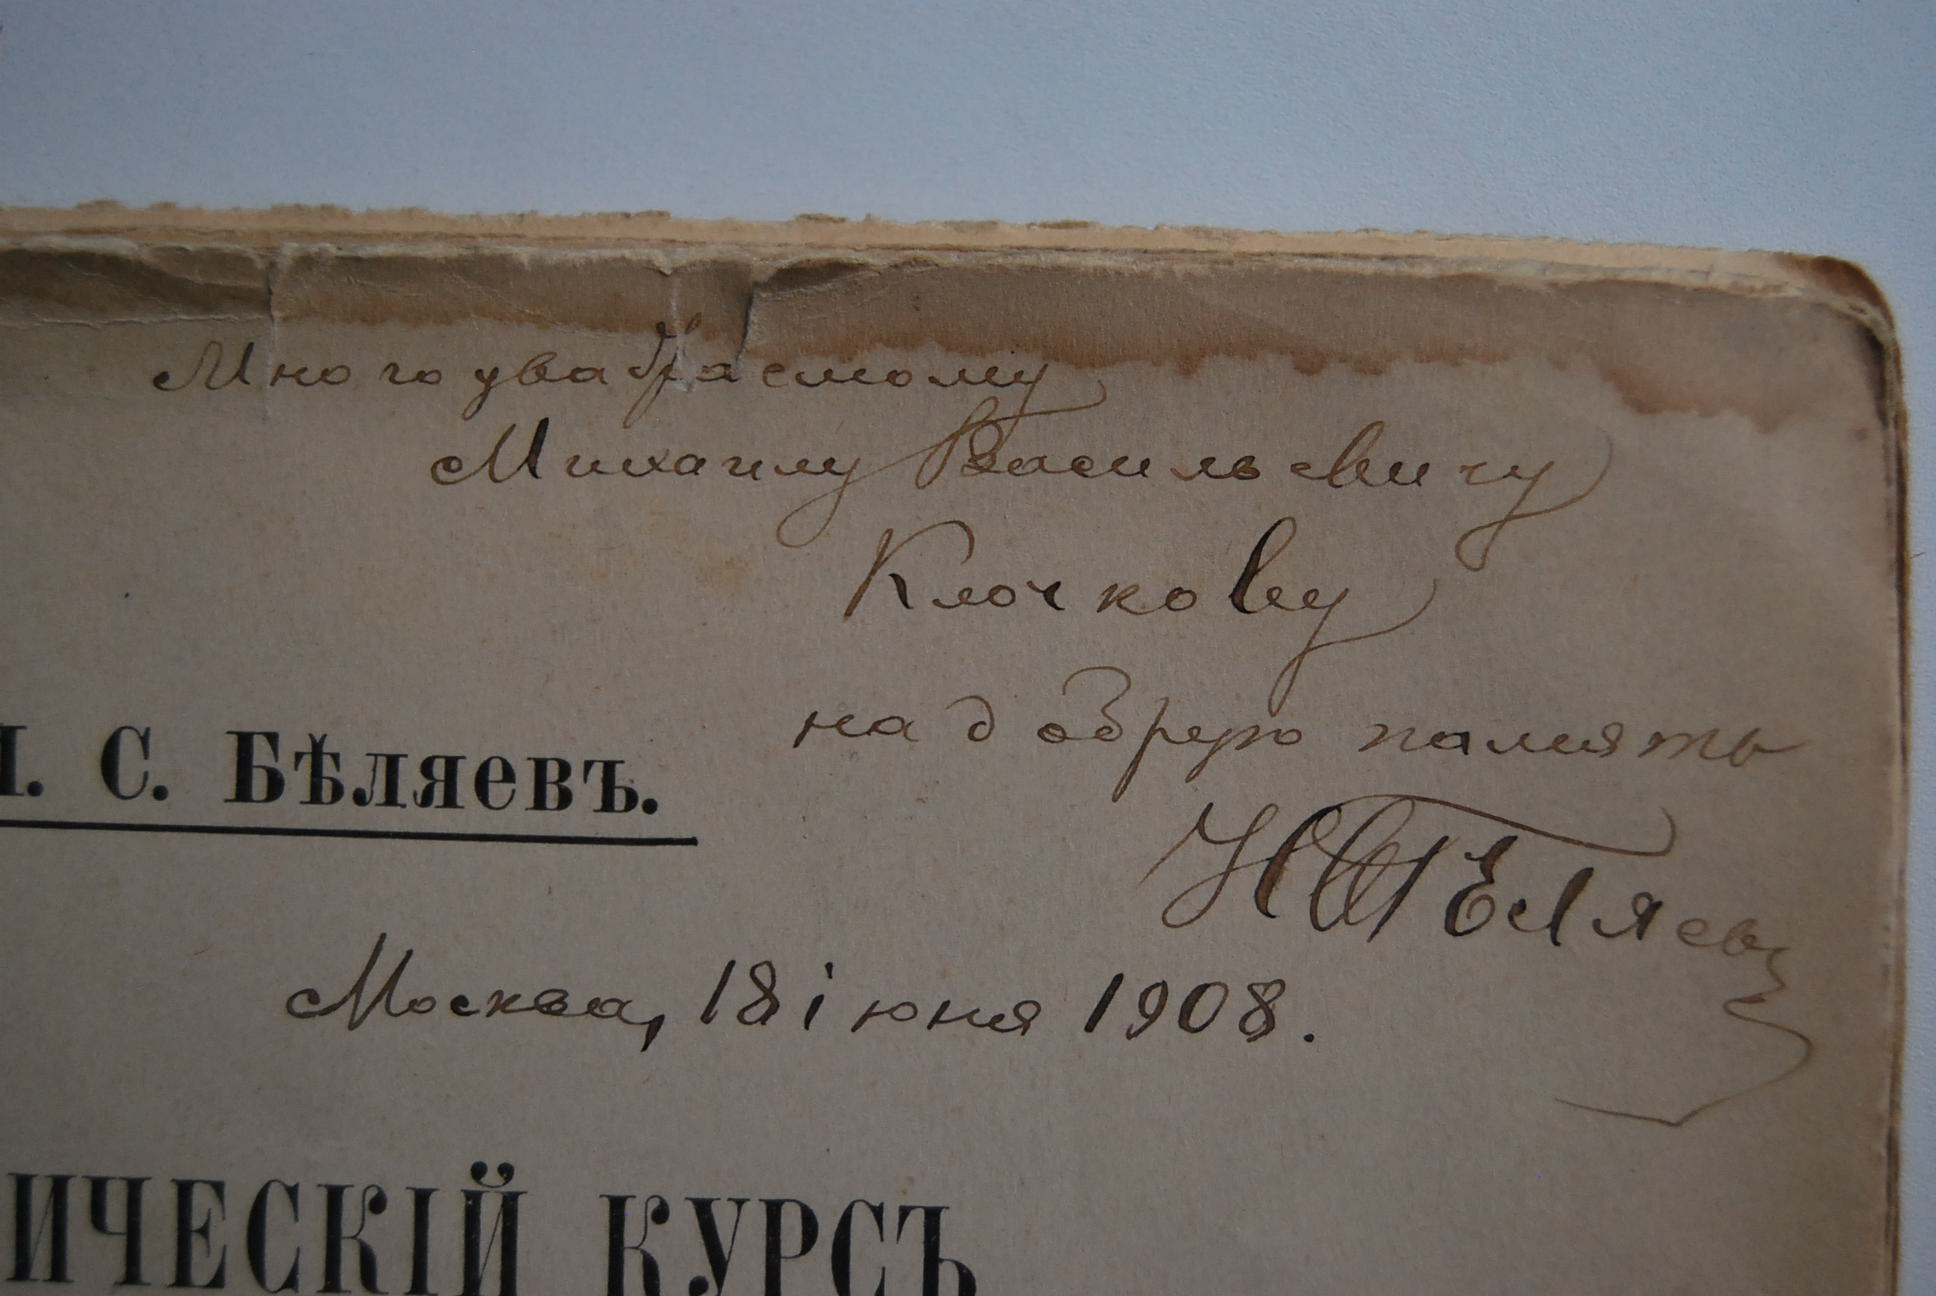 Многоуважаемому
Михаилу Васильевичу
Клочкову
на добрую память
С. Бѣляевъ.
Москва, 18 iюня 1908.
ИЧЕСКІЙ КУРСЪ